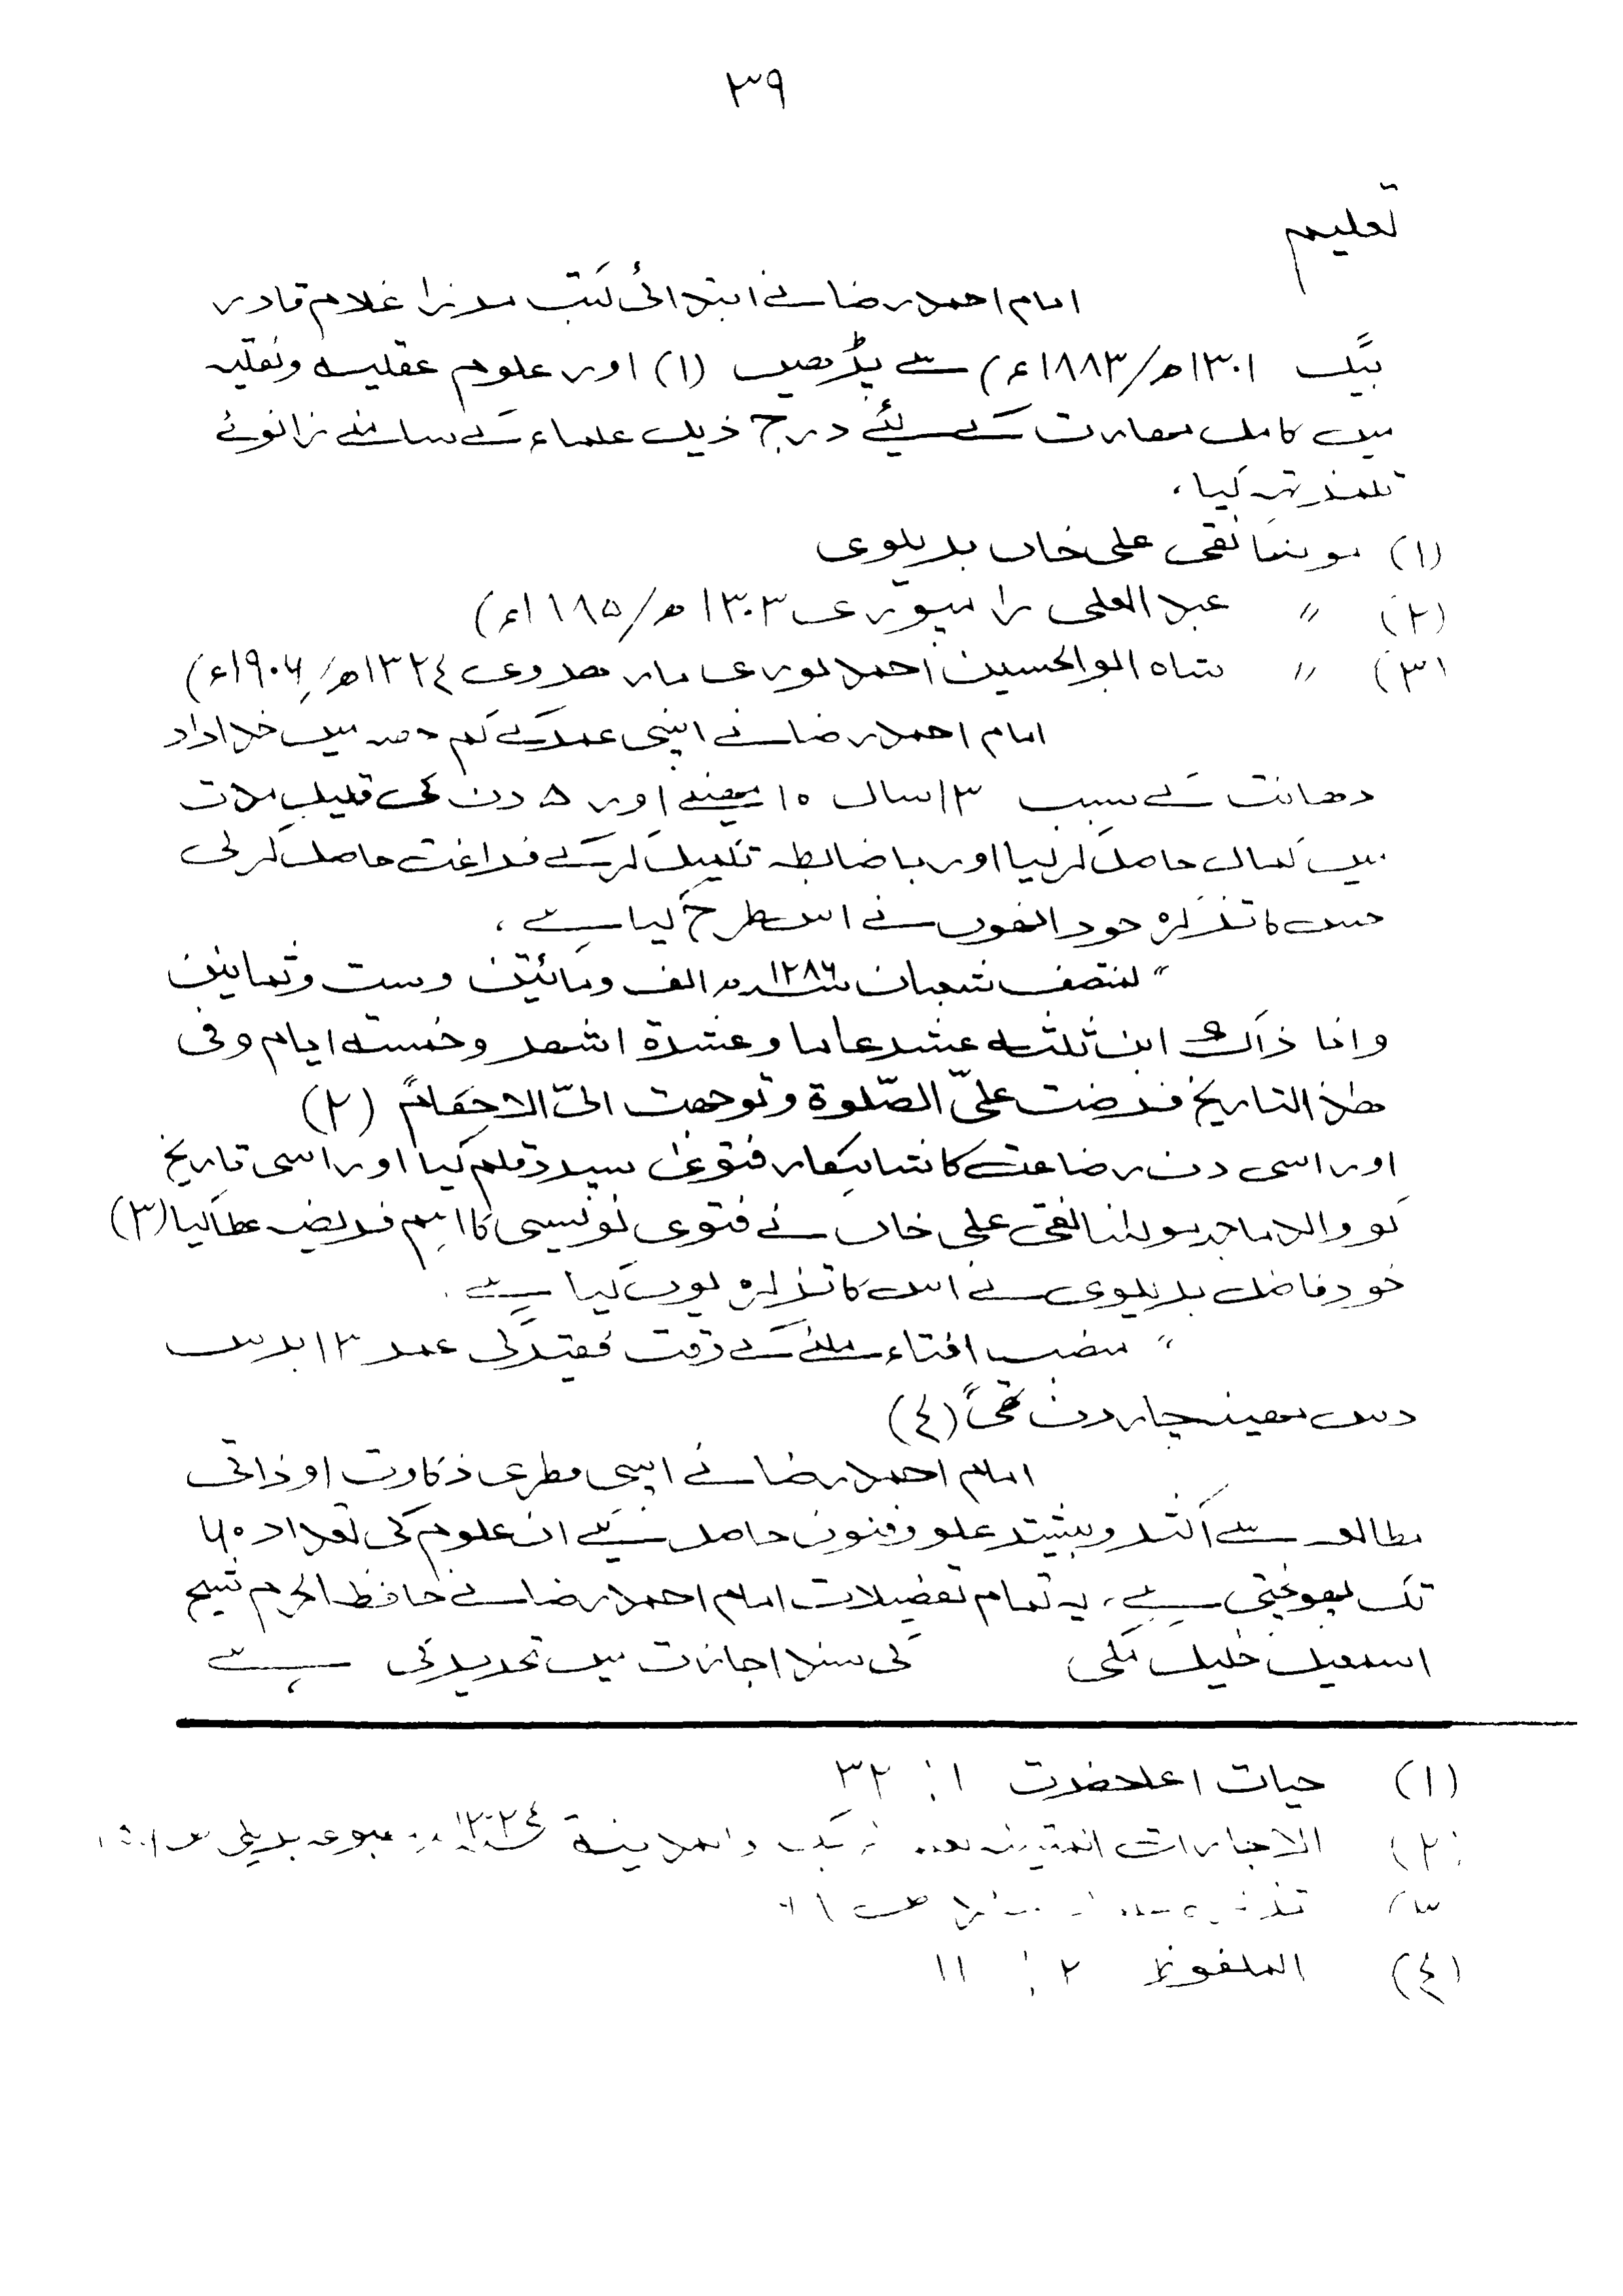 ٣٩
تعلیم
امام احمد رضا نے ابتدائی کتب مرزا غلام قادر
بیگ ١٣٠١ھ/١٨٨٣ء) سے پڑھیں (١) اور علوم عقلیہ و نقلیہ
میں کامل مہارت کے لیئے درج ذیل علماء کے سامنے زانوئے
تلمذ تہ کیا۔
(١) مولینا نقی علی خاں بریلوی
(٢) ״ عبد العلی رامپوری ١٣٠٣ھ/١٨٨٥ء)
(٣) ״ شاہ ابو الحسین احمد نوری مارہروی ١٣٢٤ھ/١٩٠٦ء)
امام احمد رضا نے اپنی عمر کے کم حصہ میں خداداد
ذھانت کے سبب ١٣ سال ١٠ مہینے اور ٥ دن کی قلیل مدت
میں کمال حاصل کر لیا اور باضابطہ تکمیل کر کے فراغت حاصل کر لی
جس کا تذکرہ خود انھوں نے اس طرح کیا ہے،
״ لمنتصف شعبان ١٢٨٦ سنہ الف ومائتین وست وثمانین
وانا ذاک ابن ثلثہ عشر عاما وعشرة اشھر وخمسہ ایام وفی
ھذا التاریخ فرضت علیّ الصّلوة وتوجھت الیّ الاحکام״ (٢)
اور اسی دن رضاعت کا شاہکار فتویٰ سپرد قلم کیا اور اسی تاریخ
کو والد ماجد مولانا نقی علی خاں نے فتوی نویسی کا اہم فریضہ عطا کیا (٣)
خود فاضل بریلوی نے اس کا تذکرہ یوں کیا ہے۔
״ منصب افتاء ملنے کے وقت فقیر کی عمر ١٣ برس
دس مہینہ چار دن تھی״ (٤)
امام احمد رضا نے اپنی فطری ذکاوت او ذاتی
مطالعہ سے اکثر و بیشتر علو و فنون حاصل کئے ان علوم کی تعداد ٦٠
تک پہونچتی ہے، یہ تمام تفصیلات امام احمد رضا نے حافظ الحرم شیخ
اسمعیل خلیل مکی کی سند اجازت میں تحریر کی ہے
(١) حیات اعلحضرت ١: ٣٢
(٢) الاجازات المتینہ بکة والمدینة ١٣٢٤ بریلی
(٤) الملفوظ ٢: ١١